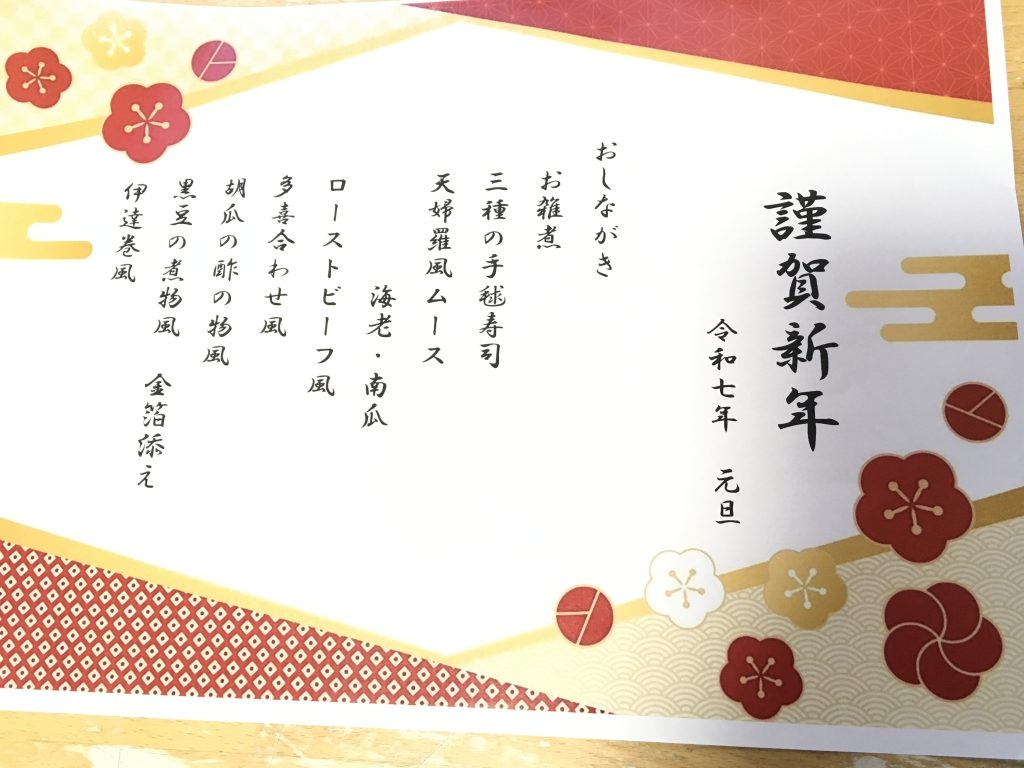 謹賀新年
令和七年 元旦
おしながき
お雑煮
三種の手毬寿司
天婦羅風ムース
海老・南瓜
ローストビーフ風
多喜合わせ風
胡瓜の酢の物風
黒豆の煮物風 金箔添え
伊達巻風